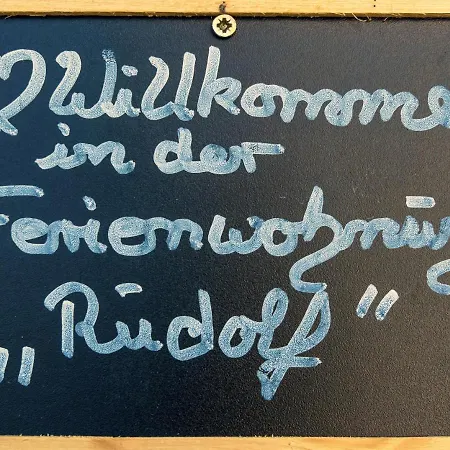 Willkomme
in der
Ferienwohnung
„Rudolf"